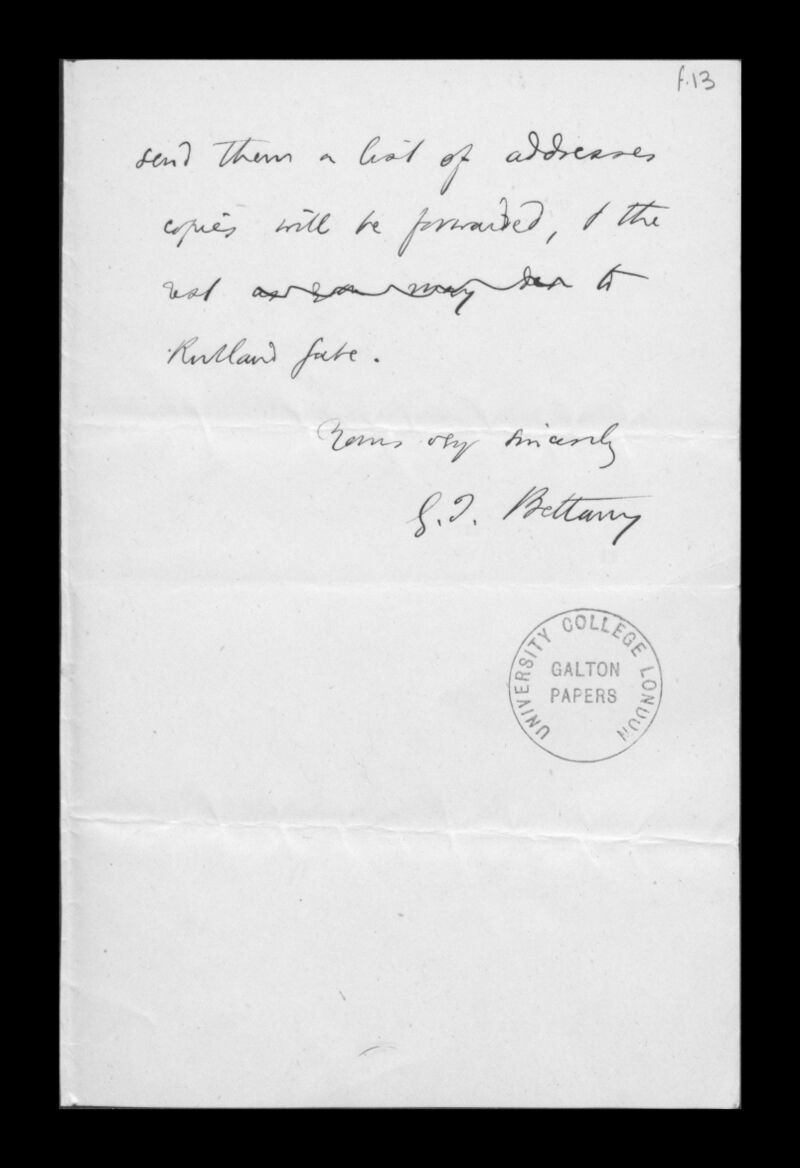 f.13
send them a list of addresses
copies will be forwarded, & the
rest as you may to
Rutland Gate.
Yours very sincerely
G. T. Bettany
UNIVERSITY COLLEGE LONDON
GALTON
PAPERS